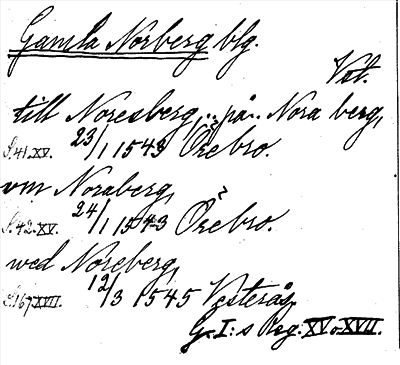 Gamla Norberg blg.
Vst.
till Noresberg, .. på .. Nora berg,
S.41.XV. 23/1 1543 Örebro.
vm Noraberg,
S.42.XV. 24/1 1543 Örebro.
wed Noreberg,
S.167.XVII. 12/3 1545 Vesterås,
G. I:s Reg. XV o. XVII.